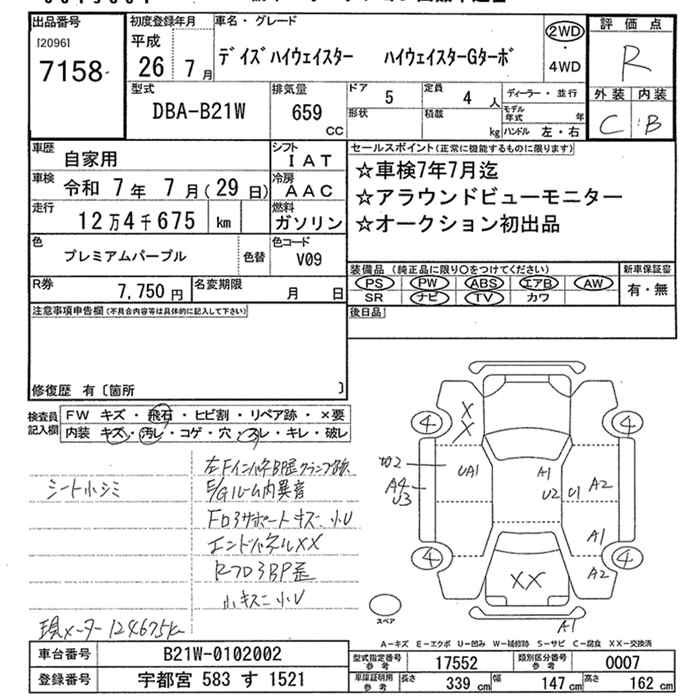 出品番号
[2096]
7158
初度登録年月
平成
26 7月
車名・グレード
デイズハイウェイスター ハイウェイスターGターボ
2WD
・
4WD
評価点
R
外装 内装
C : B
型式
DBA-B21W
排気量
659
CC
ドア 5
定員 4 人
形状
積載 kg
ディーラー・並行
モデル年式 年
ハンドル 左・右
車歴 自家用
シフト IAT
車検 令和 7年 7月(29日)
冷房 AAC
走行 12万4千675 km
燃料 ガソリン
色 プレミアムパープル 色替
色コード V09
R券 7,750円
名変期限 月 日
セールスポイント(正常に機能するものに限ります)
☆車検7年7月迄
☆アラウンドビューモニター
☆オークション初出品
装備品(純正品に限り○をつけてください)
新車保証書
PS PW ABS エアB AW
SR ナビ TV カワ
有・無
後日品
注意事項申告欄(不具合内容等は具体的に記入して下さい)
修復歴 有〔箇所 〕
検査員記入欄
FW キズ・飛石・ヒビ割・リペア跡・×要
内装 キズ・汚レ・コゲ・穴・スレ・キレ・破レ
シート小シミ
E/Gルーム内異音
Fロアサポートキズ、小U
エンドパネルXX
小キズ、小U
現メーター124675k
X
X
4
4
4
4
W2
A4
U3
UA1
A1
U2
U1
A2
A1
A2
XX
A1
スペア
A-キズ E-エクボ U-凹み W-補修跡 S-サビ C-腐食 XX-交換済
車台番号 B21W-0102002
登録番号 宇都宮 583 す 1521
型式指定番号 参考 17552
類別区分番号 参考 0007
車庫証明用 参考 長さ 339 cm 幅 147 cm 高さ 162 cm